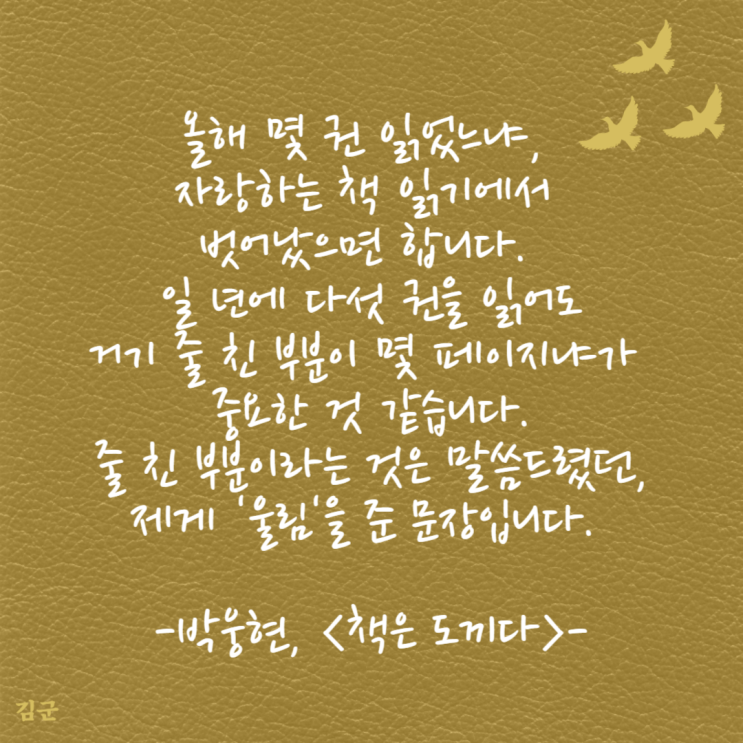 올해 몇 권 읽었느냐,
자랑하는 책 읽기에서
벗어났으면 합니다.
일 년에 다섯 권을 읽어도
거기 줄 친 부분이 몇 페이지냐가
중요한 것 같습니다.
줄 친 부분이라는 것은 말씀드렸던,
제게 '울림'을 준 문장입니다.
-박웅현, <책은 도끼다>-
김군